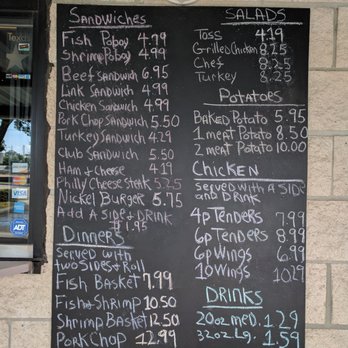 Sandwiches
Fish Poboy 4.79
Shrimp Poboy 4.99
Beef Sandwich 6.95
Link Sandwich 4.99
Chicken Sandwich 4.99
Pork Chop Sandwich 5.50
Turkey Sandwich 4.29
Club Sandwich 5.50
Ham & Cheese 4.19
Philly Cheese Steak 5.25
Nickel Burger 5.75
Add A Side & Drink
$1.95
Dinners
Served with
two Sides & Roll
Fish Basket 7.99
Fish & Shrimp 10.50
Shrimp Basket 12.50
Pork Chop 12.99
SALADS
Toss 4.19
Grilled Chicken 8.25
Chef 8.25
Turkey 8.25
Potatoes
Baked Potato 5.95
1 meat Potato 8.50
2 meat Potato 10.00
Chicken
Served with A Side
and Drink
4p Tenders 7.99
6p Tenders 8.99
6p Wings 6.99
10 Wings 10.29
Drinks
20oz med. 1.29
32oz Lg. 1.59
VISA
ADT